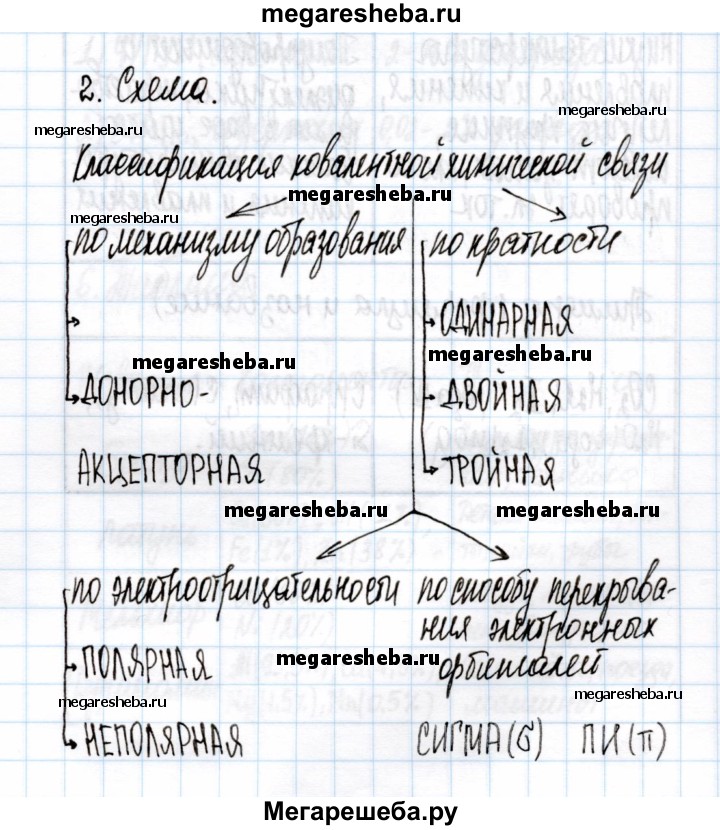 megaresheba.ru
2. Схема.
megaresheba.ru
megaresheba.ru
Классификация ковалентной химической связи
megaresheba.ru
megaresheba.ru
по механизму образования
по кратности
ОДИНАРНАЯ
megaresheba.ru
megaresheba.ru
ДОНОРНО-
ДВОЙНАЯ
АКЦЕПТОРНАЯ
ТРОЙНАЯ
megaresheba.ru
megaresheba.ru
по электроотрицательности
по способу перекрыва-
ния электронных
орбиталей
ПОЛЯРНАЯ
megaresheba.ru
megaresheba.ru
НЕПОЛЯРНАЯ
СИГМА (б) ПИ (π)
megaresheba.ru
Мегарешеба.ру